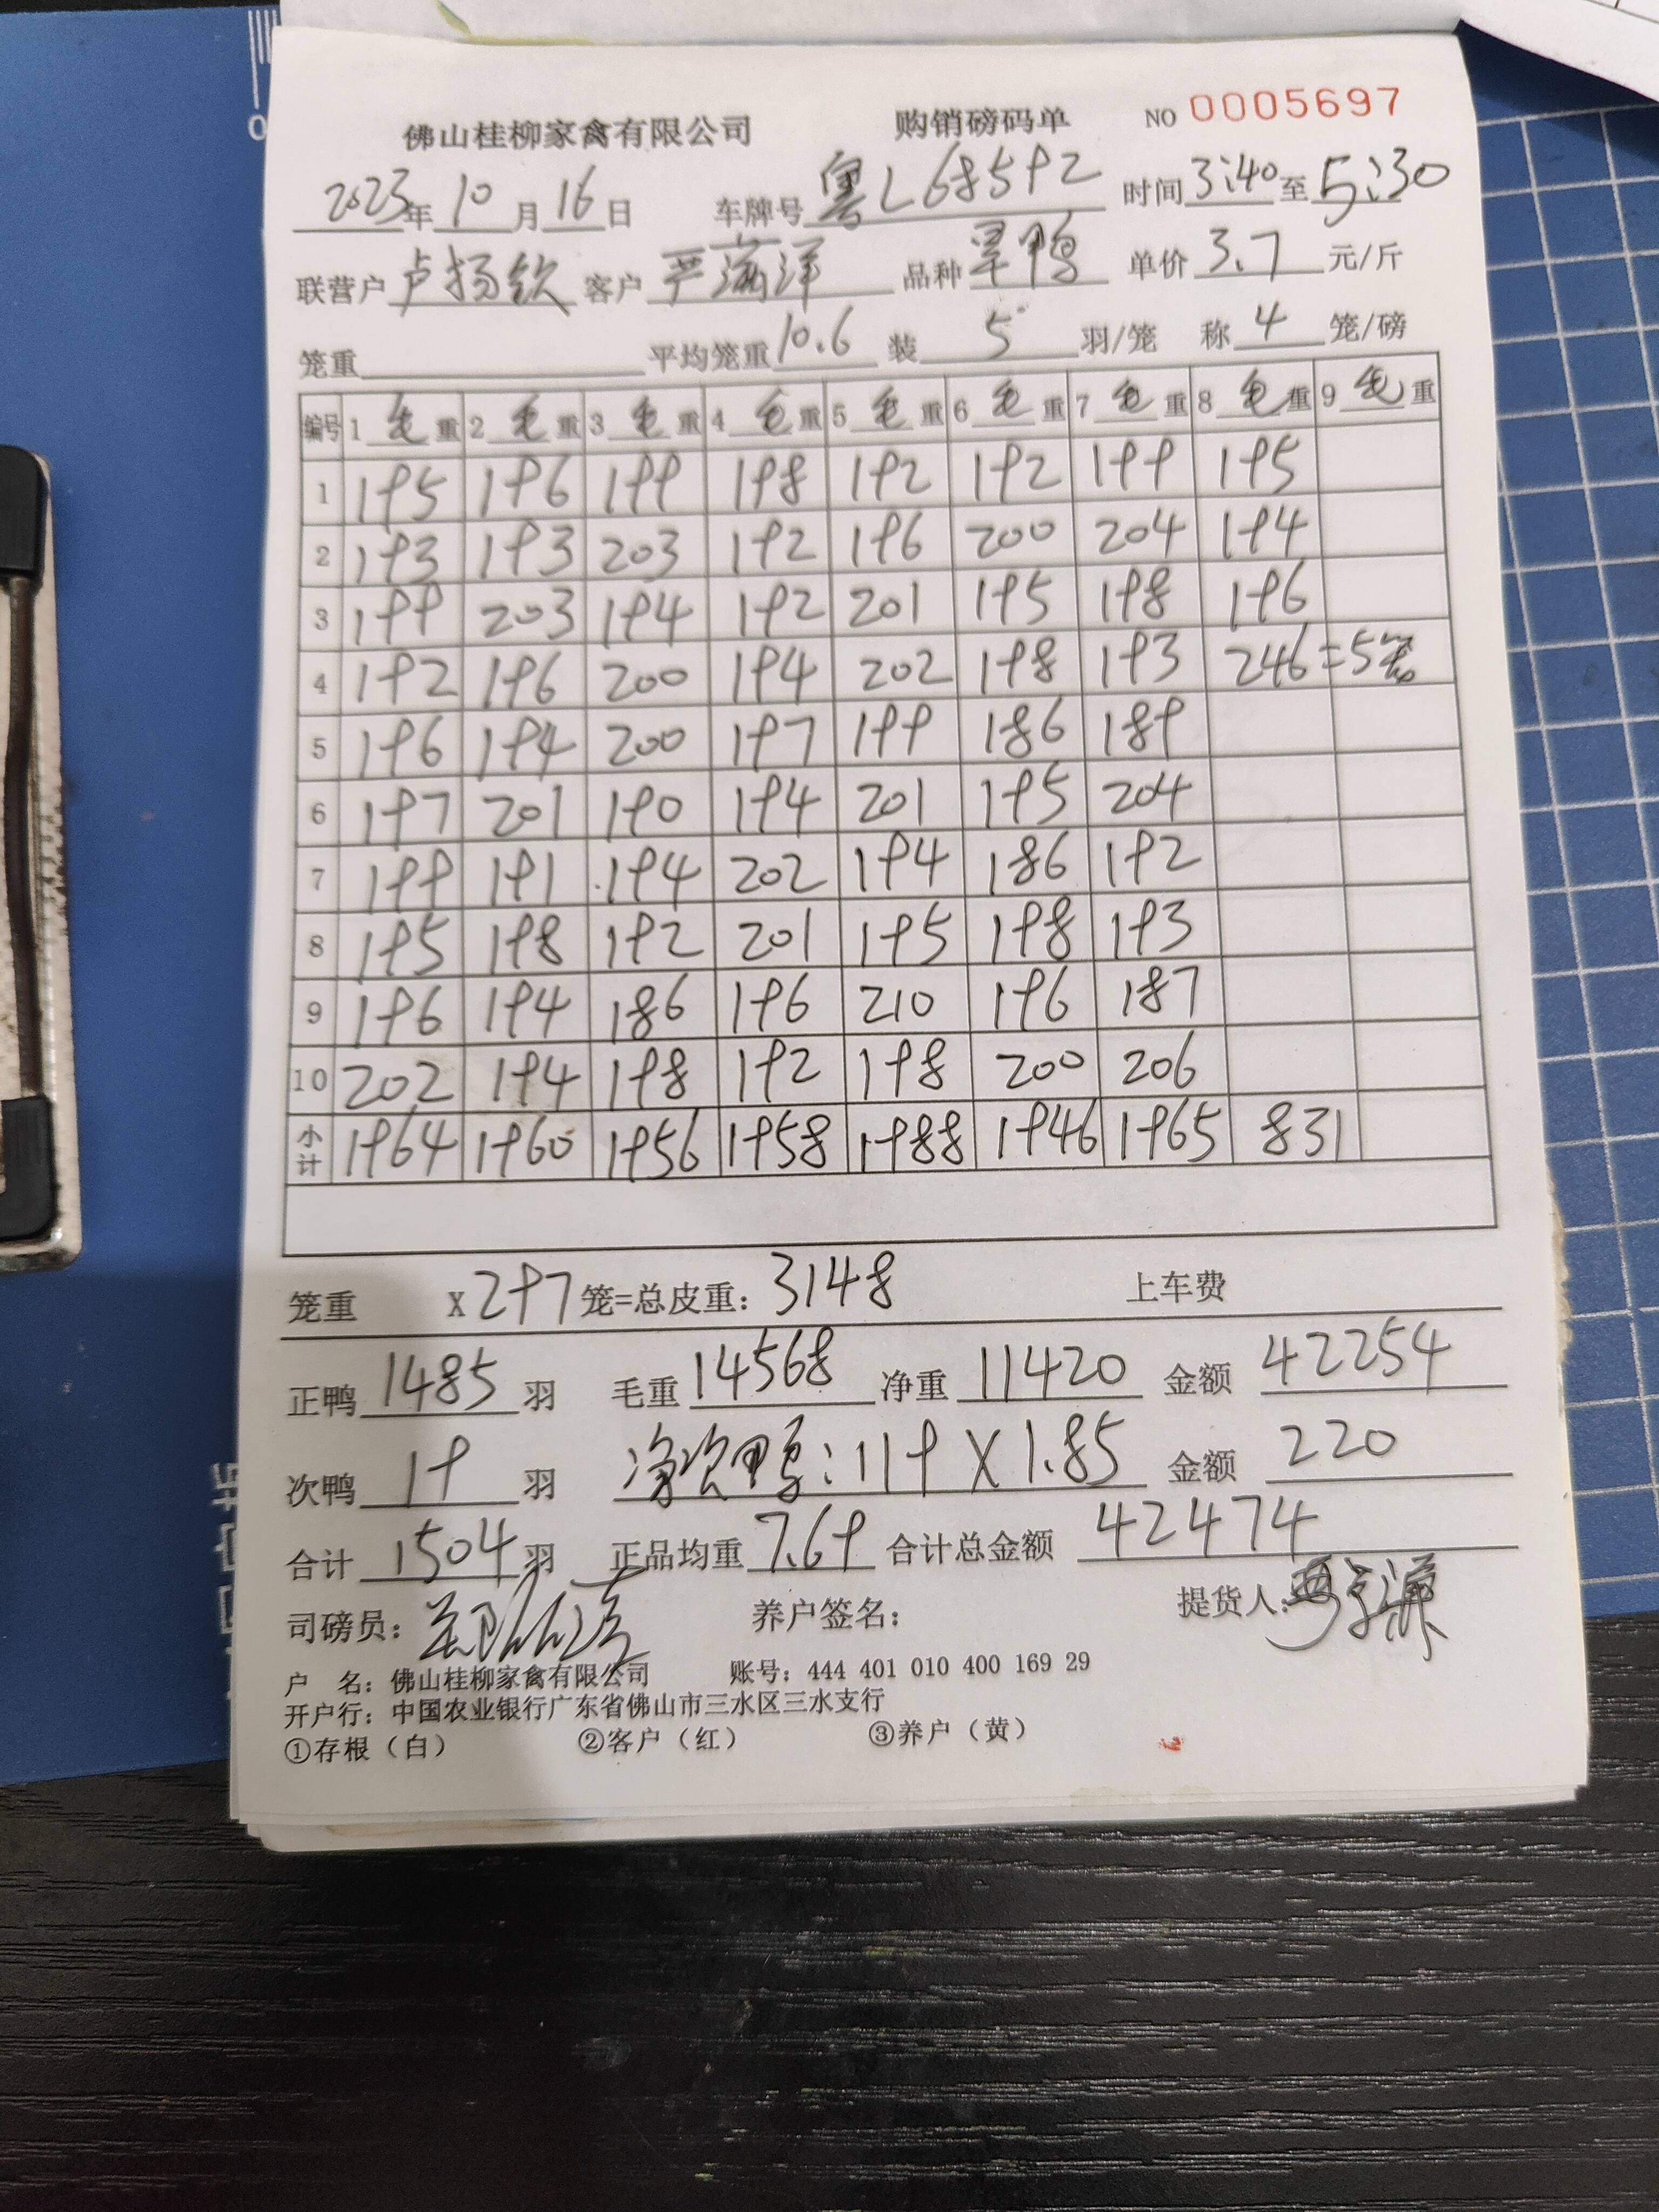 佛山桂柳家禽有限公司 购销磅码单 NO 0005697
2023年10月16日 车牌号 粤L68592 时间 3:40 至 5:30
联营户 卢扬钦 客户 严满洋 品种 旱鸭 单价 3.7 元/斤
笼重 平均笼重 10.6 装 5 羽/笼 称 4 笼/磅
编号 1 毛重 2 毛重 3 毛重 4 毛重 5 毛重 6 毛重 7 毛重 8 毛重 9 毛重
1 195 196 199 198 192 192 199 195
2 193 193 203 192 196 200 204 194
3 199 203 194 192 201 195 198 196
4 192 196 200 194 202 198 193 246=5笼
5 196 194 200 197 199 186 189
6 197 201 190 194 201 195 204
7 199 191 194 202 194 186 192
8 195 198 192 201 195 198 193
9 196 194 186 196 210 196 187
10 202 194 198 192 198 200 206
小计 1964 1960 1956 1958 1988 1946 1965 831
笼重 X 297 笼=总皮重: 3148 上车费
正鸭 1485 羽 毛重 14568 净重 11420 金额 42254
次鸭 19 羽 净次鸭:119 X 1.85 金额 220
合计 1504 羽 正品均重 7.69 合计总金额 42474
司磅员: 养户签名: 提货人:
户 名: 佛山桂柳家禽有限公司 账号: 444 401 010 400 169 29
开户行: 中国农业银行广东省佛山市三水区三水支行
①存根(白) ②客户(红) ③养户(黄)